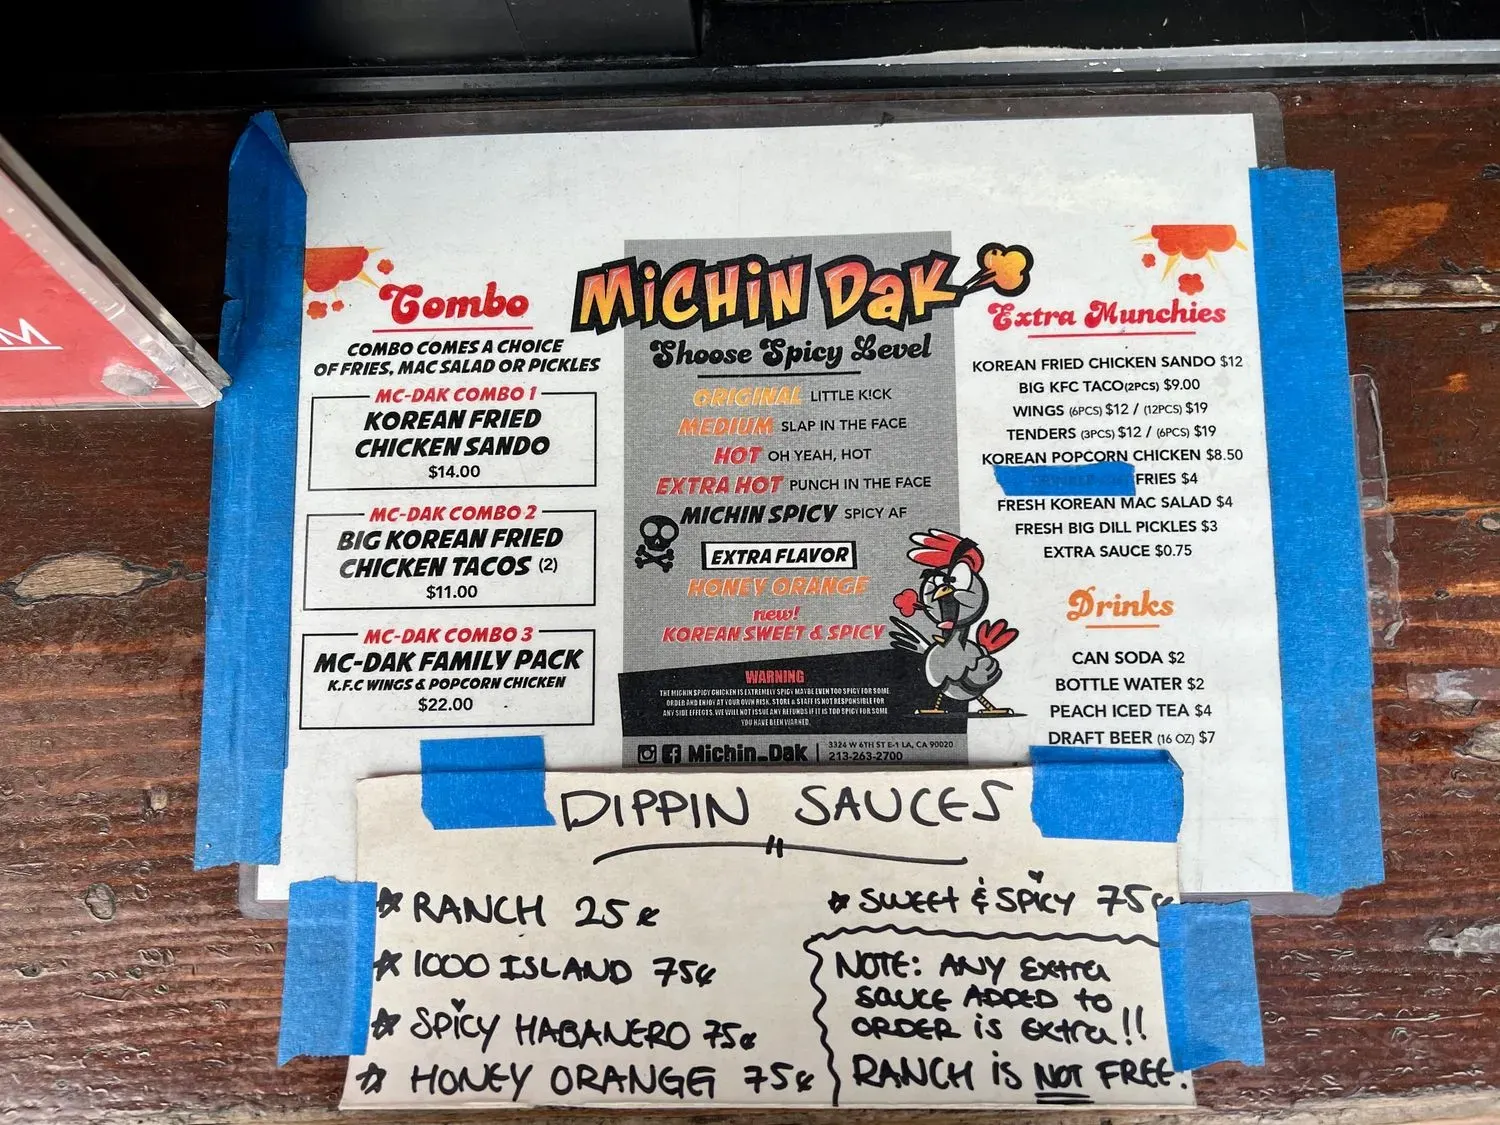 M
Combo
COMBO COMES A CHOICE
OF FRIES, MAC SALAD OR PICKLES
MC-DAK COMBO 1
KOREAN FRIED
CHICKEN SANDO
$14.00
MC-DAK COMBO 2
BIG KOREAN FRIED
CHICKEN TACOS (2)
$11.00
MC-DAK COMBO 3
MC-DAK FAMILY PACK
K.F.C WINGS & POPCORN CHICKEN
$22.00
MICHIN DAK
Shoose Spicy Level
ORIGINAL LITTLE K!CK
MEDIUM SLAP IN THE FACE
HOT OH YEAH, HOT
EXTRA HOT PUNCH IN THE FACE
MICHIN SPICY SPICY AF
EXTRA FLAVOR
HONEY ORANGE
new!
KOREAN SWEET & SPICY
WARNING
THE MICHIN SPICY CHICKEN IS EXTREMELY SPICY MAYBE EVEN TOO SPICY FOR SOME
ORDER AND ENJOY AT YOUR OWN RISK. STORE & STAFF IS NOT RESPONSIBLE FOR
ANY SIDE EFFECTS. WE WILL NOT ISSUE ANY REFUNDS IF IT IS TOO SPICY FOR SOME
YOU HAVE BEEN WARNED.
Michin_Dak
3324 W 6TH ST E-1 LA, CA 90020
213-263-2700
Extra Munchies
KOREAN FRIED CHICKEN SANDO $12
BIG KFC TACO(2PCS) $9.00
WINGS (6PCS) $12 / (12PCS) $19
TENDERS (3PCS) $12 / (6PCS) $19
KOREAN POPCORN CHICKEN $8.50
FRIES $4
FRESH KOREAN MAC SALAD $4
FRESH BIG DILL PICKLES $3
EXTRA SAUCE $0.75
Drinks
CAN SODA $2
BOTTLE WATER $2
PEACH ICED TEA $4
DRAFT BEER (16 OZ) $7
DIPPIN SAUCES
☆ RANCH 25¢
☆ 1000 ISLAND 75¢
☆ SPICY HABANERO 75¢
☆ HONEY ORANGE 75¢
☆ SWEET & SPICY 75¢
NOTE: ANY EXTRA
SAUCE ADDED TO
ORDER iS EXTRA!!
RANCH iS NOT FREE.